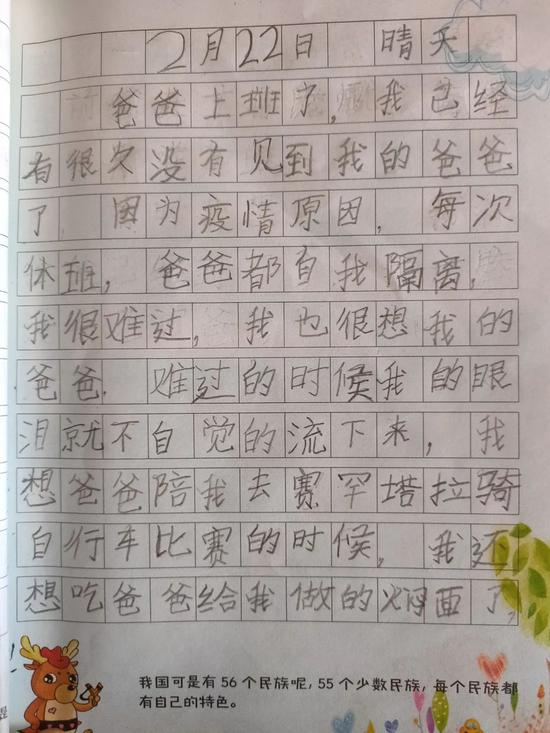 2月22日 晴天
爸爸上班了，我已经
有很久没有见到我的爸爸
了 因为疫情原因，每次
休班，爸爸都自我隔离，
我很难过，我也很想我的
爸爸 难过的时候我的眼
泪就不自觉的流下来，我
想爸爸陪我去赛罕塔拉骑
自行车比赛的时候，我还
想吃爸爸给我做的焖面了，
我国可是有56个民族呢，55个少数民族，每个民族都
有自己的特色。